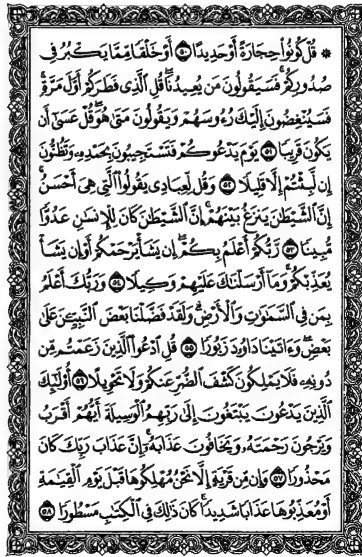 ۞ قُلْ كُونُوا۟ حِجَارَةً أَوْ حَدِيدًا ۝٥٠ أَوْ خَلْقًا مِّمَّا يَكْبُرُ فِى
صُدُورِكُمْ ۚ فَسَيَقُولُونَ مَن يُعِيدُنَا ۖ قُلِ ٱلَّذِى فَطَرَكُمْ أَوَّلَ مَرَّةٍ ۚ
فَسَيُنْغِضُونَ إِلَيْكَ رُءُوسَهُمْ وَيَقُولُونَ مَتَىٰ هُوَ ۖ قُلْ عَسَىٰٓ أَن
يَكُونَ قَرِيبًا ۝٥١ يَوْمَ يَدْعُوكُمْ فَتَسْتَجِيبُونَ بِحَمْدِهِۦ وَتَظُنُّونَ
إِن لَّبِثْتُمْ إِلَّا قَلِيلًا ۝٥٢ وَقُل لِّعِبَادِى يَقُولُوا۟ ٱلَّتِى هِىَ أَحْسَنُ ۚ
إِنَّ ٱلشَّيْطَٰنَ يَنزَغُ بَيْنَهُمْ ۚ إِنَّ ٱلشَّيْطَٰنَ كَانَ لِلْإِنسَٰنِ عَدُوًّا
مُّبِينًا ۝٥٣ رَّبُّكُمْ أَعْلَمُ بِكُمْ ۖ إِن يَشَأْ يَرْحَمْكُمْ أَوْ إِن يَشَأْ
يُعَذِّبْكُمْ ۚ وَمَآ أَرْسَلْنَٰكَ عَلَيْهِمْ وَكِيلًا ۝٥٤ وَرَبُّكَ أَعْلَمُ
بِمَن فِى ٱلسَّمَٰوَٰتِ وَٱلْأَرْضِ ۗ وَلَقَدْ فَضَّلْنَا بَعْضَ ٱلنَّبِيِّۦنَ عَلَىٰ
بَعْضٍ ۖ وَءَاتَيْنَا دَاوُۥدَ زَبُورًا ۝٥٥ قُلِ ٱدْعُوا۟ ٱلَّذِينَ زَعَمْتُم مِّن
دُونِهِۦ فَلَا يَمْلِكُونَ كَشْفَ ٱلضُّرِّ عَنكُمْ وَلَا تَحْوِيلًا ۝٥٦ أُو۟لَٰٓئِكَ
ٱلَّذِينَ يَدْعُونَ يَبْتَغُونَ إِلَىٰ رَبِّهِمُ ٱلْوَسِيلَةَ أَيُّهُمْ أَقْرَبُ
وَيَرْجُونَ رَحْمَتَهُۥ وَيَخَافُونَ عَذَابَهُۥٓ ۚ إِنَّ عَذَابَ رَبِّكَ كَانَ
مَحْذُورًا ۝٥٧ وَإِن مِّن قَرْيَةٍ إِلَّا نَحْنُ مُهْلِكُوهَا قَبْلَ يَوْمِ ٱلْقِيَٰمَةِ
أَوْ مُعَذِّبُوهَا عَذَابًا شَدِيدًا ۚ كَانَ ذَٰلِكَ فِى ٱلْكِتَٰبِ مَسْطُورًا ۝٥٨